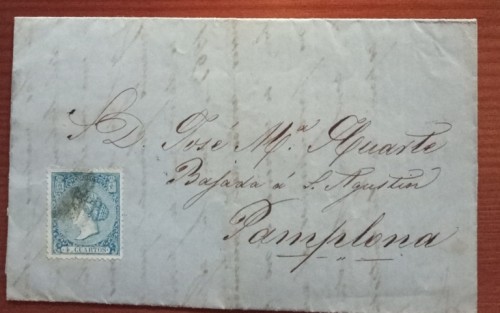 S. D. José Mª. Huarte
Bajada á S. Agustin
Pamplona
4 CUARTOS